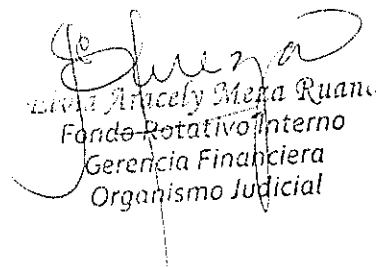 Aracely Meza Ruano
Fondo Rotativo Interno
Gerencia Financiera
Organismo Judicial